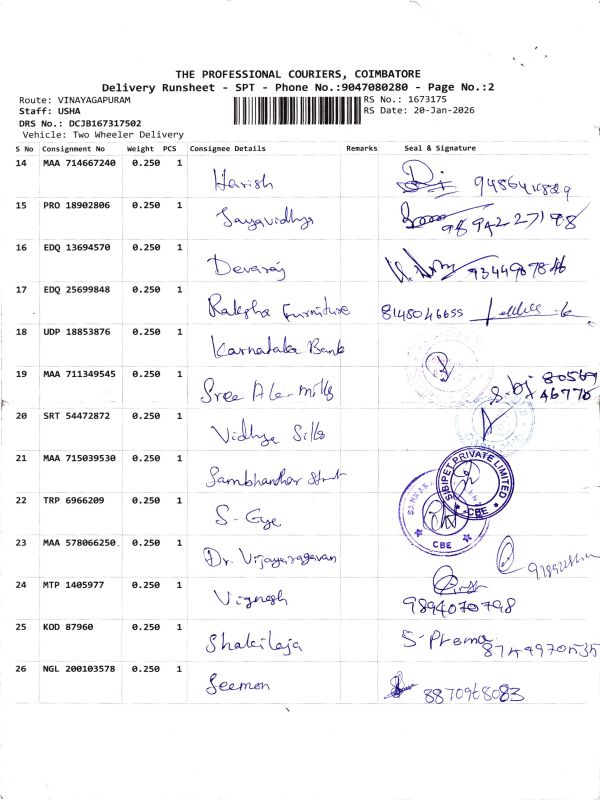 THE PROFESSIONAL COURIERS, COIMBATORE
Delivery Runsheet - SPT - Phone No.:9047080280 - Page No.:2
Route: VINAYAGAPURAM RS No.: 1673175
Staff: USHA RS Date: 20-Jan-2026
DRS No.: DCJB167317502
Vehicle: Two Wheeler Delivery
S No Consignment No Weight PCS Consignee Details Remarks Seal & Signature
14 MAA 714667240 0.250 1
Harish
15 PRO 18902806 0.250 1
Jayavidhya 9894227198
16 EDQ 13694570 0.250 1
Devaraj
17 EDQ 25699848 0.250 1
Raksha Furniture 8148046655
18 UDP 18853876 0.250 1
Karnataka Bank
19 MAA 711349545 0.250 1
Sree Ale-Mills 80569
46776
20 SRT 54472872 0.250 1
Vidhya Silks
21 MAA 715039530 0.250 1
Sambhandhar Street
SIBIPET PRIVATE LIMITED
CBE
22 TRP 6966209 0.250 1
S-Eye
CBE
23 MAA 578066250. 0.250 1
Dr. Vijayaragavan
24 MTP 1405977 0.250 1
Vignesh 9894070798
25 KOD 87960 0.250 1
Shakilaja S-Prema
26 NGL 200103578 0.250 1
Seemon 8870968083